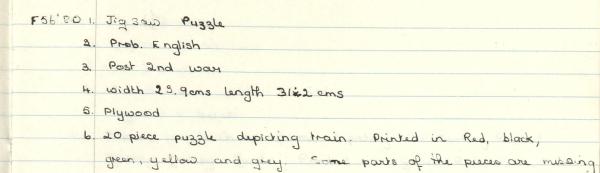 F56'80 1. Jigsaw Puzzle
2. Prob. English
3. Post 2nd war
4. width 23.9cms length 31.2 cms
5. Plywood
6. 20 piece puzzle depicting train. Printed in Red, black,
green, yellow and grey. Some parts of the pieces are missing